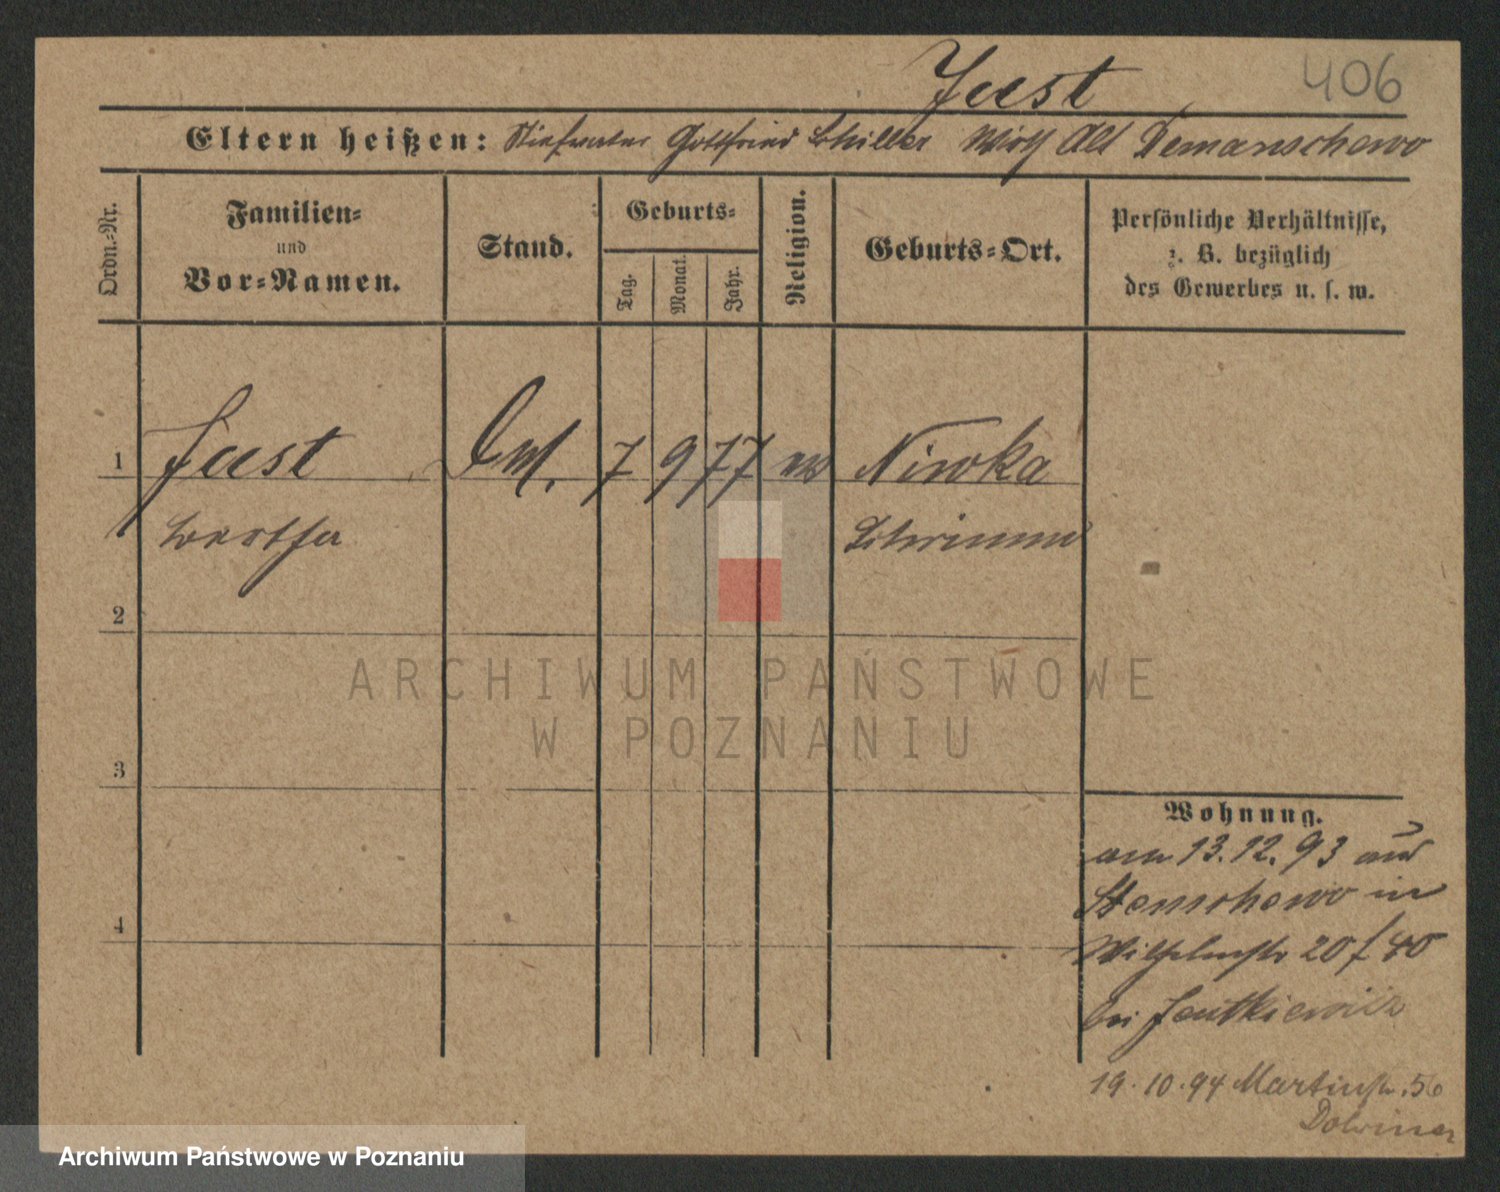 Jeest
406
Eltern heißen: Stiefvater Gottfried Schiller Wirth Alt Demanschewo
Ordn.-Nr.
Familien-
und
Vor-Namen.
Stand.
Geburts-
Tag.
Monat.
Jahr.
Religion.
Geburts-Ort.
Persönliche Verhältnisse,
z. B. bezüglich
des Gewerbes u. s. w.
1 Jeest 7 9 77 ev Niwka
Bertha Schrimm
2
3
4
Wohnung.
am 13.12.93 aus
Stenschewo in
Wilhelmstr 20
bei
19.10.94 Martinstr. 56
ARCHIWUM PAŃSTWOWE
W POZNANIU
Archiwum Państwowe w Poznaniu